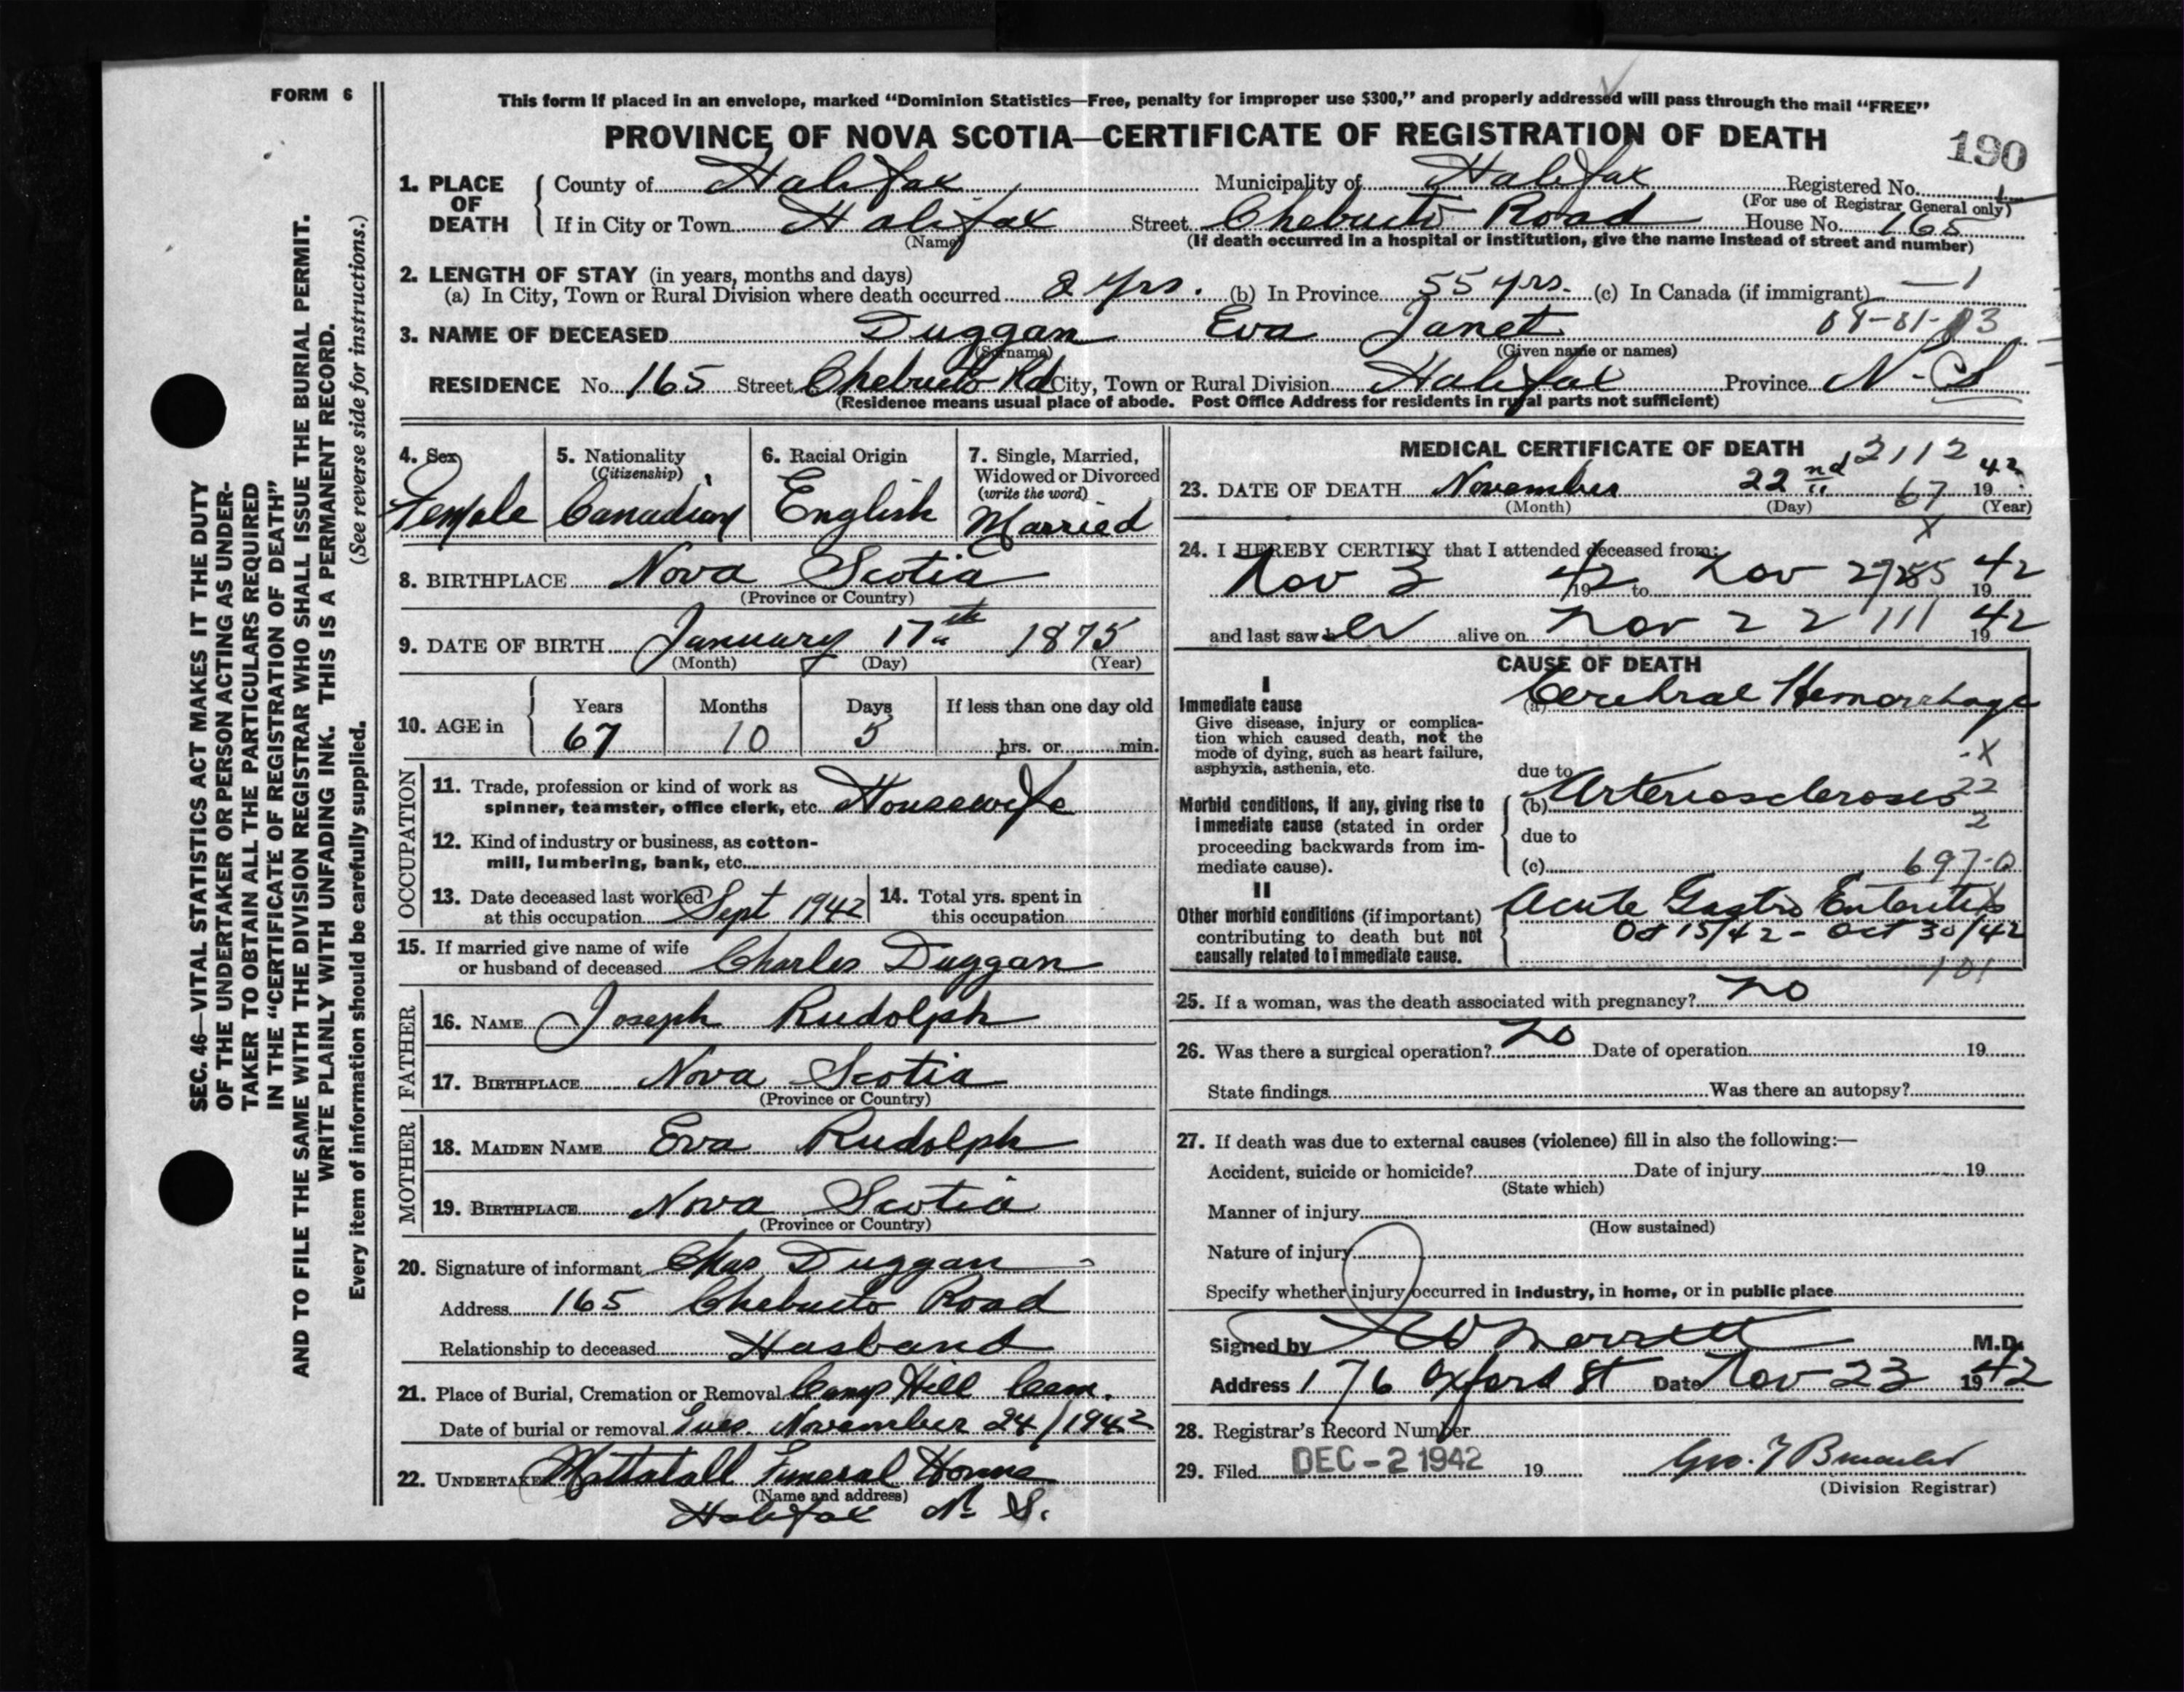 FORM 6
This form if placed in an envelope, marked “Dominion Statistics—Free, penalty for improper use $300,” and properly addressed will pass through the mail “FREE”
PROVINCE OF NOVA SCOTIA—CERTIFICATE OF REGISTRATION OF DEATH
190
1. PLACE OF DEATH County of Halifax Municipality of Halifax Registered No.
(For use of Registrar General only)
If in City or Town Halifax Street Chebucto Road House No. 165
(Name) (If death occurred in a hospital or institution, give the name instead of street and number)
2. LENGTH OF STAY (in years, months and days)
(a) In City, Town or Rural Division where death occurred 2 yrs. (b) In Province 55 yrs. (c) In Canada (if immigrant) — 1
3. NAME OF DECEASED Duggan Eva Janet
(Surname) (Given name or names)
RESIDENCE No. 165 Street Chebucto Rd City, Town or Rural Division Halifax Province N.S
(Residence means usual place of abode. Post Office Address for residents in rural parts not sufficient)
4. Sex 5. Nationality 6. Racial Origin 7. Single, Married,
(Citizenship) Widowed or Divorced
(write the word)
Female Canadian English Married
8. BIRTHPLACE Nova Scotia
(Province or Country)
9. DATE OF BIRTH January 17th 1875
(Month) (Day) (Year)
10. AGE in Years Months Days If less than one day old
67 10 5 hrs. or min.
OCCUPATION
11. Trade, profession or kind of work as
spinner, teamster, office clerk, etc. Housewife
12. Kind of industry or business, as cotton-
mill, lumbering, bank, etc.
13. Date deceased last worked 14. Total yrs. spent in
at this occupation Sept 1942 this occupation
15. If married give name of wife
or husband of deceased Charles Duggan
FATHER
16. NAME Joseph Rudolph
17. BIRTHPLACE Nova Scotia
(Province or Country)
MOTHER
18. MAIDEN NAME Eva Rudolph
19. BIRTHPLACE Nova Scotia
(Province or Country)
20. Signature of informant Chas Duggan
Address 165 Chebucto Road
Relationship to deceased Husband
21. Place of Burial, Cremation or Removal Camp Hill Cem.
Date of burial or removal Tues. November 24/1942
22. UNDERTAKER Mattatall Funeral Home
(Name and address)
Halifax N. S.
MEDICAL CERTIFICATE OF DEATH
2112
23. DATE OF DEATH November 22nd 67 1942
(Month) (Day) (Year)
X
24. I HEREBY CERTIFY that I attended deceased from:
Nov 3 1942 to Nov 1942
and last saw her alive on Nov 22 111 1942
CAUSE OF DEATH
I
Immediate cause
Give disease, injury or complica-
tion which caused death, not the
mode of dying, such as heart failure,
asphyxia, asthenia, etc.
(a) Cerebral Hemorrhage
X
due to
Morbid conditions, if any, giving rise to
immediate cause (stated in order
proceeding backwards from im-
mediate cause).
(b) Arteriosclerosis 22
2
due to
(c) 697-0
II
Other morbid conditions (if important)
contributing to death but not
causally related to immediate cause.
Acute Gastro Enteritis
Oct 15/42 - Oct 30/42
101
25. If a woman, was the death associated with pregnancy? no
26. Was there a surgical operation? no Date of operation 19
State findings Was there an autopsy?
27. If death was due to external causes (violence) fill in also the following:—
Accident, suicide or homicide? Date of injury 19
(State which)
Manner of injury
(How sustained)
Nature of injury
Specify whether injury occurred in industry, in home, or in public place
Signed by M.D.
Address 176 Oxford St Date Nov 23 1942
28. Registrar's Record Number
29. Filed DEC -2 1942 19
(Division Registrar)
SEC. 46—VITAL STATISTICS ACT MAKES IT THE DUTY
OF THE UNDERTAKER OR PERSON ACTING AS UNDER-
TAKER TO OBTAIN ALL THE PARTICULARS REQUIRED
IN THE “CERTIFICATE OF REGISTRATION OF DEATH”
AND TO FILE THE SAME WITH THE DIVISION REGISTRAR WHO SHALL ISSUE THE BURIAL PERMIT.
WRITE PLAINLY WITH UNFADING INK. THIS IS A PERMANENT RECORD.
Every item of information should be carefully supplied. (See reverse side for instructions.)